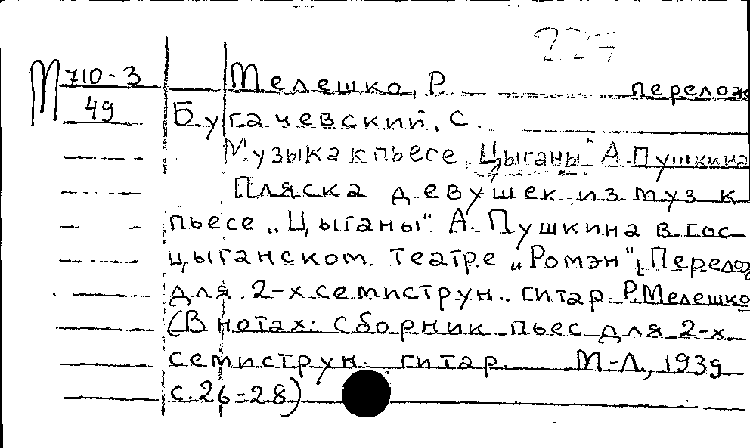 227
М 710-3 Мелешко, Р. перелож
49 Бугачевский, С.
Музыка к пьесе „Цыганы" А. Пушкина
Пляска девушек из муз к
пьесе „Цыганы". А. Пушкина в Гос-
цыганском театре „Ромэн", Перелож
для 2-х семиструн. гитар Р. Мелешко
(В нотах: Сборник пьес для 2-х
семиструн. гитар. М-Л, 1939
с. 26-28)